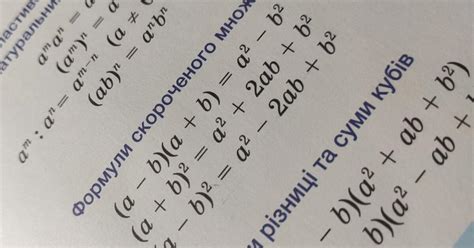 aᵐaⁿ = a
(aᵐ)ⁿ = a
aᵐ : aⁿ = aᵐ⁻ⁿ (a ≠
(ab)ⁿ = aⁿbⁿ
Формули скороченого
(a − b)(a + b) = a² − b²
(a + b)² = a² + 2ab + b²
− b)² = a² − 2ab + b²
різниці та суми кубів
− b)(a² + ab + b²)
b)(a² − ab +